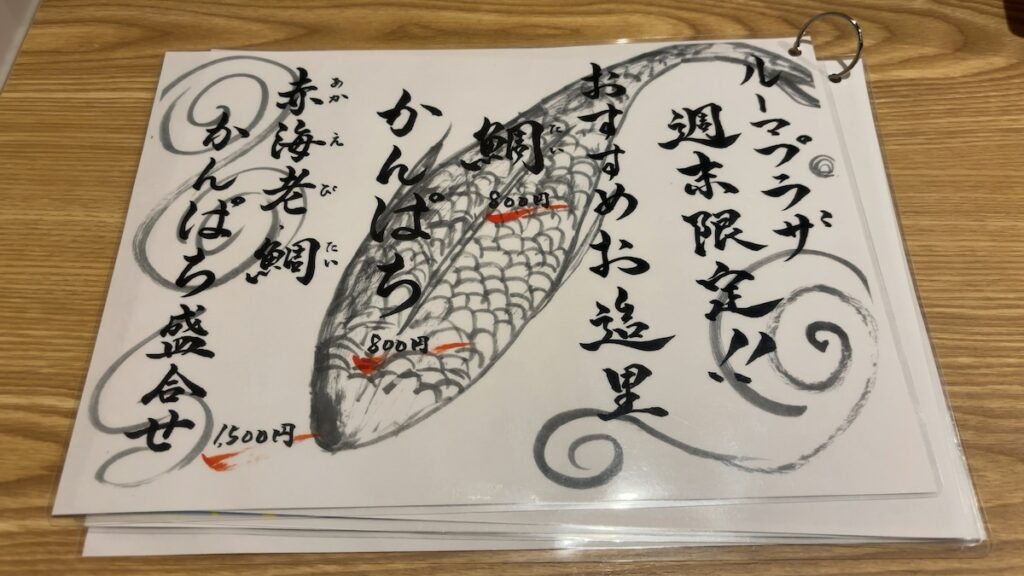 ルーマプラザ
週末限定!!
おすすめお造里
鯛
たい
800円
かんぱち
800円
赤海老 鯛
あかえび たい
かんぱち盛合せ
1,500円